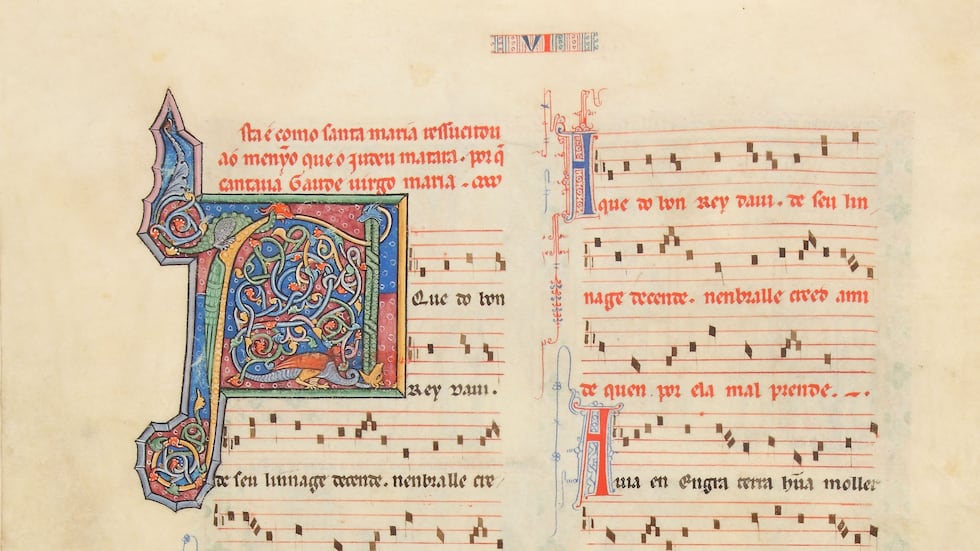 VI
sta é como santa maria ressucitou
aó menỹo que o judeu matara. por q̃
cantaua Gaude uirgo maria.
A Que do bon
Rey daui.
de seu linnage decende. nenbralle cre
A que do bon Rey daui. de seu lin
nage decende. nenbralle creed ami
de quen por ela mal prende.
Auia en Engra terra hũa moller